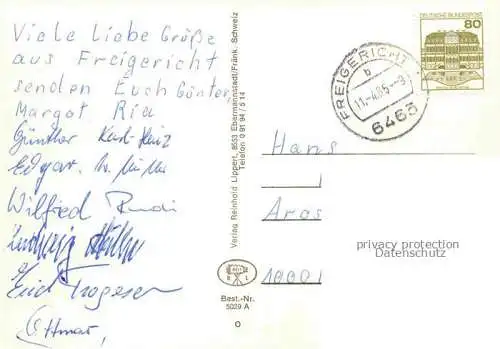 Viele liebe Grüße
aus Freigericht
senden Euch Günter,
Margot Ria
Günther Karl-Heinz
Edgar
Wilfried Rudi
Ludwig
Erich
Othmar,
Verlag Reinhold Lippert, 8553 Ebermannstadt/Fränk. Schweiz
Telefon 0 91 94 / 5 14
Best.-Nr.
5029 A
DEUTSCHE BUNDESPOST
80
FREIGERICHT
b
11.-4.85-9
6463
Hans
Aros
10001
privacy protection
Datenschutz